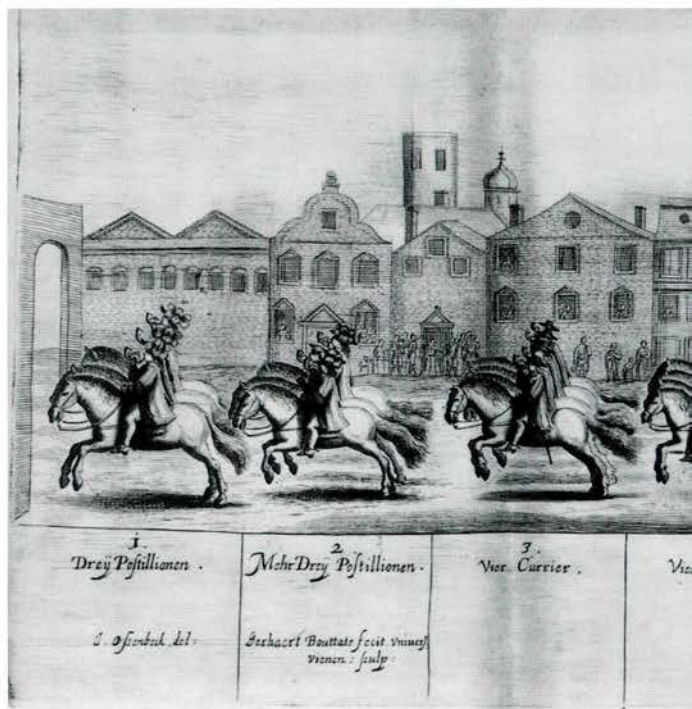 1.
Dreÿ Postillionen.
J. Ossenbeck del:
2
Mehr Dreÿ Postillionen.
Gerhaert Bouttats fecit Univers.
Vienen: sculp:
3.
Vier Currier.
Vier